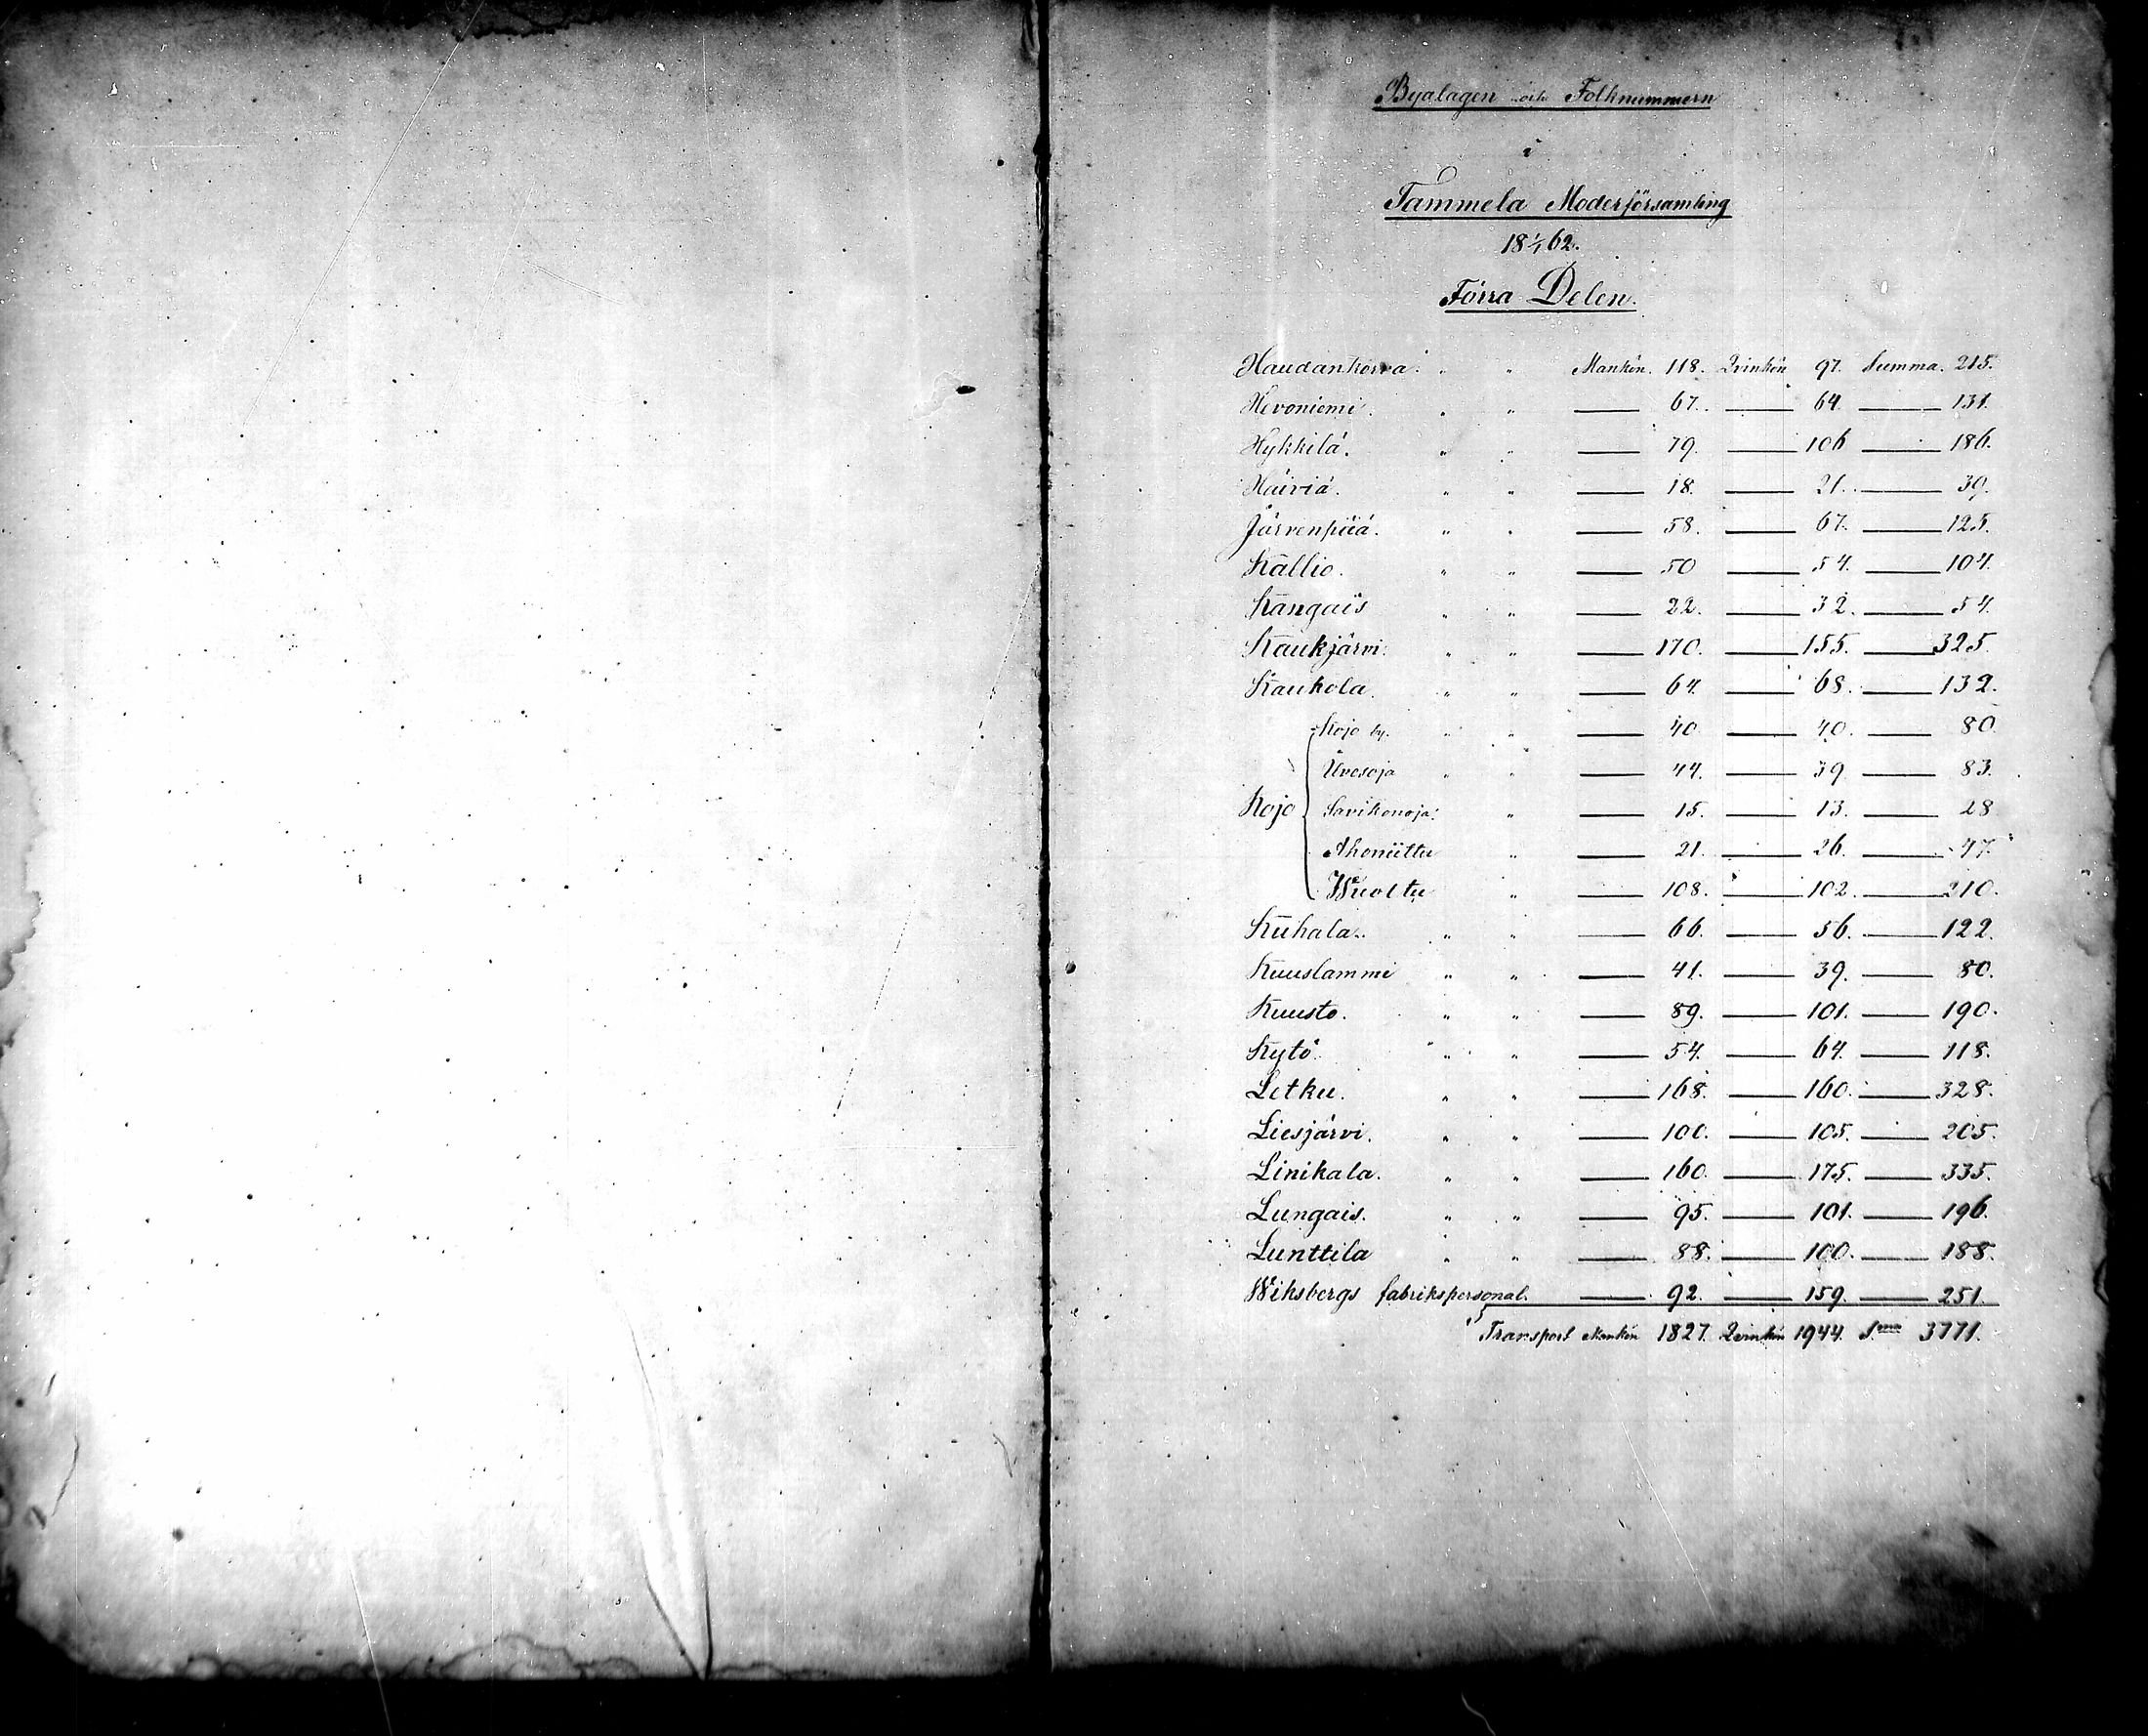 Byalagen och Folknummern
i
Tammela Moderförsamling
18 1/1 62.
Förra Delen.
Haudankorva. " " Mankön. 118. Qvinkön 97. Summa. 215.
Hevoniemi. " " — 67. — 64. — 131.
Hykkilä. " " — 79. — 106 — 186.
Häiviä. " " — 18. — 21. — 39.
Järvenpää. " " — 58. — 67. — 125.
Kallio. " " — 50 — 54. — 104.
Kangais " " — 22. — 32. — 54.
Kaukjärvi. " " — 170. — 155. — 325.
Kaukola. " " — 64. — 68. — 132.
Kojo by. " " — 40 — 40. — 80
Uresoja " " — 44. — 39. — 83.
Kojo Savikonoja. " — 15. — 13. — 28
Ahoniittu " — 21. — 26. — 47.
Wuoltu " — 108. — 102. — 210.
Kuhala. " " — 66. — 56. — 122.
Kuuslammi " " — 41. — 39. — 80.
Kuusto. " " — 89. — 101. — 190.
Kytö. " " — 54. — 64. — 118.
Letku. " " — 168. — 160. — 328.
Liesjärvi. " " — 100. — 105. — 205.
Linikala. " " — 160. — 175. — 335.
Lungais. " " — 95. — 101. — 196.
Lunttila " " — 88. — 100. — 188.
Wiksbergs fabrikspersonal. — 92. — 159. — 251.
Transport Mankön 1827. Qvinkön 1944. S:ma 3771.